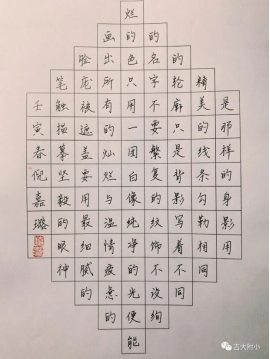 是那样的身影用
精美的线条勾勒相同
的轮廓只是背影写着不同
的名字不要繁复的纹饰不设绚
烂的色只用一团白像纯净的光便能
画出所有的灿烂与温情疲惫的
脸庞被遮盖要用最细腻的
笔触描摹坚毅的眼神
壬寅春倪嘉璐
吉大附小